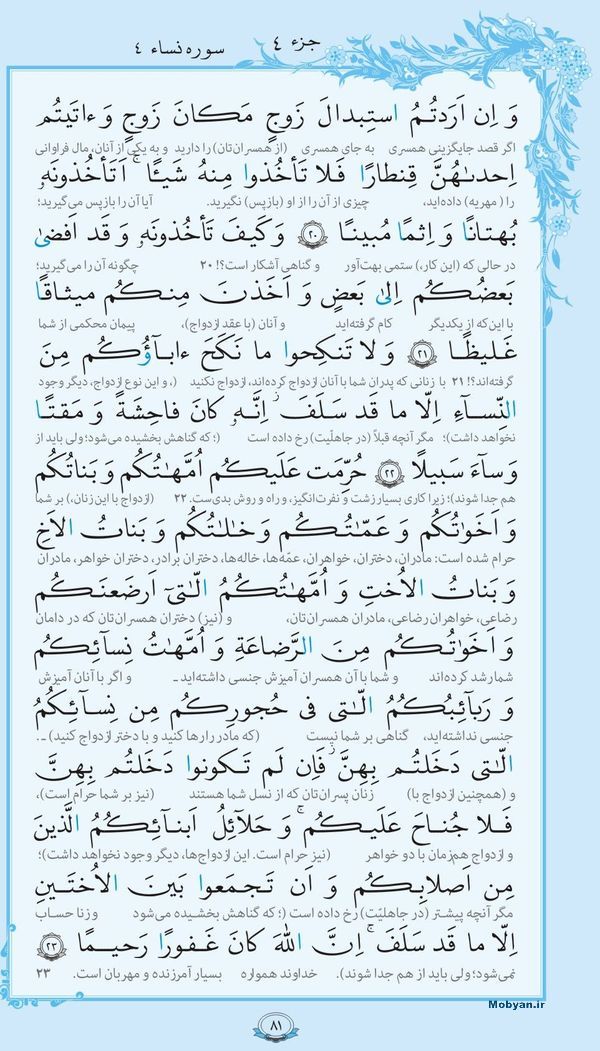 جزء ٤
سوره نساء ٤
وَ اِن اَرَدتُمُ استِبدالَ زَوجٍ مَكانَ زَوجٍ وَ ءاتَيتُم
اگر قصد جایگزینی همسری به جای همسری (از همسران‌تان) را دارید و به یکی از آنان، مال فراوانی
اِحدىٰهُنَّ قِنطارًا فَلا تَأخُذوا مِنهُ شَيئًا ۚ اَتَأخُذونَهٗ
را (مهریه) داده‌اید، چیزی از آن را از او (بازپس) نگیرید. آیا آن را بازپس می‌گیرید؛
بُهتانًا وَ اِثمًا مُبينًا ﴿٢٠﴾ وَ كَيفَ تَأخُذونَهٗ وَ قَد اَفضىٰ
در حالی که (این کار،) ستمی بهت‌آور و گناهی آشکار است؟! ٢٠ چگونه آن را می‌گیرید؛
بَعضُكُم اِلىٰ بَعضٍ وَ اَخَذنَ مِنكُم ميثاقًا
با این‌که از یکدیگر کام گرفته‌اید و آنان (با عقد ازدواج)، پیمان محکمی از شما
غَليظًا ﴿٢١﴾ وَ لا تَنكِحوا ما نَكَحَ ءابآؤُكُم مِنَ
گرفته‌اند؟! ٢١ با زنانی که پدران شما با آنان ازدواج کرده‌اند، ازدواج نکنید (، و این نوع ازدواج، دیگر وجود
النِّسآءِ اِلّا ما قَد سَلَفَ ۚ اِنَّهٗ كانَ فاحِشَةً وَ مَقتًا
نخواهد داشت)؛ مگر آنچه قبلاً (در جاهلیّت) رخ داده است (؛ که گناهش بخشیده می‌شود؛ ولی باید از
وَ سآءَ سَبيلًا ﴿٢٢﴾ حُرِّمَت عَلَيكُم اُمَّهٰتُكُم وَ بَناتُكُم
هم جدا شوند)؛ زیرا کاری بسیار زشت و نفرت‌انگیز، و راه و روش بدی‌ست. ٢٢ (ازدواج با این زنان،) بر شما
وَ اَخَوٰتُكُم وَ عَمّٰتُكُم وَ خٰلٰتُكُم وَ بَناتُ الاَخِ
حرام شده است: مادران، دختران، خواهران، عمّه‌ها، خاله‌ها، دختران برادر، دختران خواهر، مادران
وَ بَناتُ الاُختِ وَ اُمَّهٰتُكُمُ الّٰتى اَرضَعنَكُم
رضاعی، خواهران رضاعی، مادران همسران‌تان، و (نیز) دختران همسران‌تان که در دامان
وَ اَخَوٰتُكُم مِنَ الرَّضاعَةِ وَ اُمَّهٰتُ نِسآئِكُم
شما رشد کرده‌اند و شما با آن همسران آمیزش جنسی داشته‌اید ـ و اگر با آنان آمیزش
وَ رَبآئِبُكُمُ الّٰتى فى حُجورِكُم مِن نِسآئِكُمُ
جنسی نداشته‌اید، گناهی بر شما نیست (که مادر را رها کنید و با دختر ازدواج کنید) ـ.
الّٰتى دَخَلتُم بِهِنَّ فَاِن لَم تَكونوا دَخَلتُم بِهِنَّ
و (همچنین ازدواج با) زنان پسران‌تان که از نسل شما هستند (نیز بر شما حرام است)،
فَلا جُناحَ عَلَيكُم ۚ وَ حَلآئِلُ اَبنآئِكُمُ الَّذينَ
و ازدواج هم‌زمان با دو خواهر (نیز حرام است. این ازدواج‌ها، دیگر وجود نخواهد داشت)؛
مِن اَصلابِكُم وَ اَن تَجمَعوا بَينَ الاُختَينِ
مگر آنچه پیشتر (در جاهلیّت) رخ داده است (؛ که گناهش بخشیده می‌شود و زنا حساب
اِلّا ما قَد سَلَفَ ۚ اِنَّ اللّٰهَ كانَ غَفورًا رَحيمًا ﴿٢٣﴾
نمی‌شود؛ ولی باید از هم جدا شوند). خداوند همواره بسیار آمرزنده و مهربان است. ٢٣
٨١
Mobyan.ir